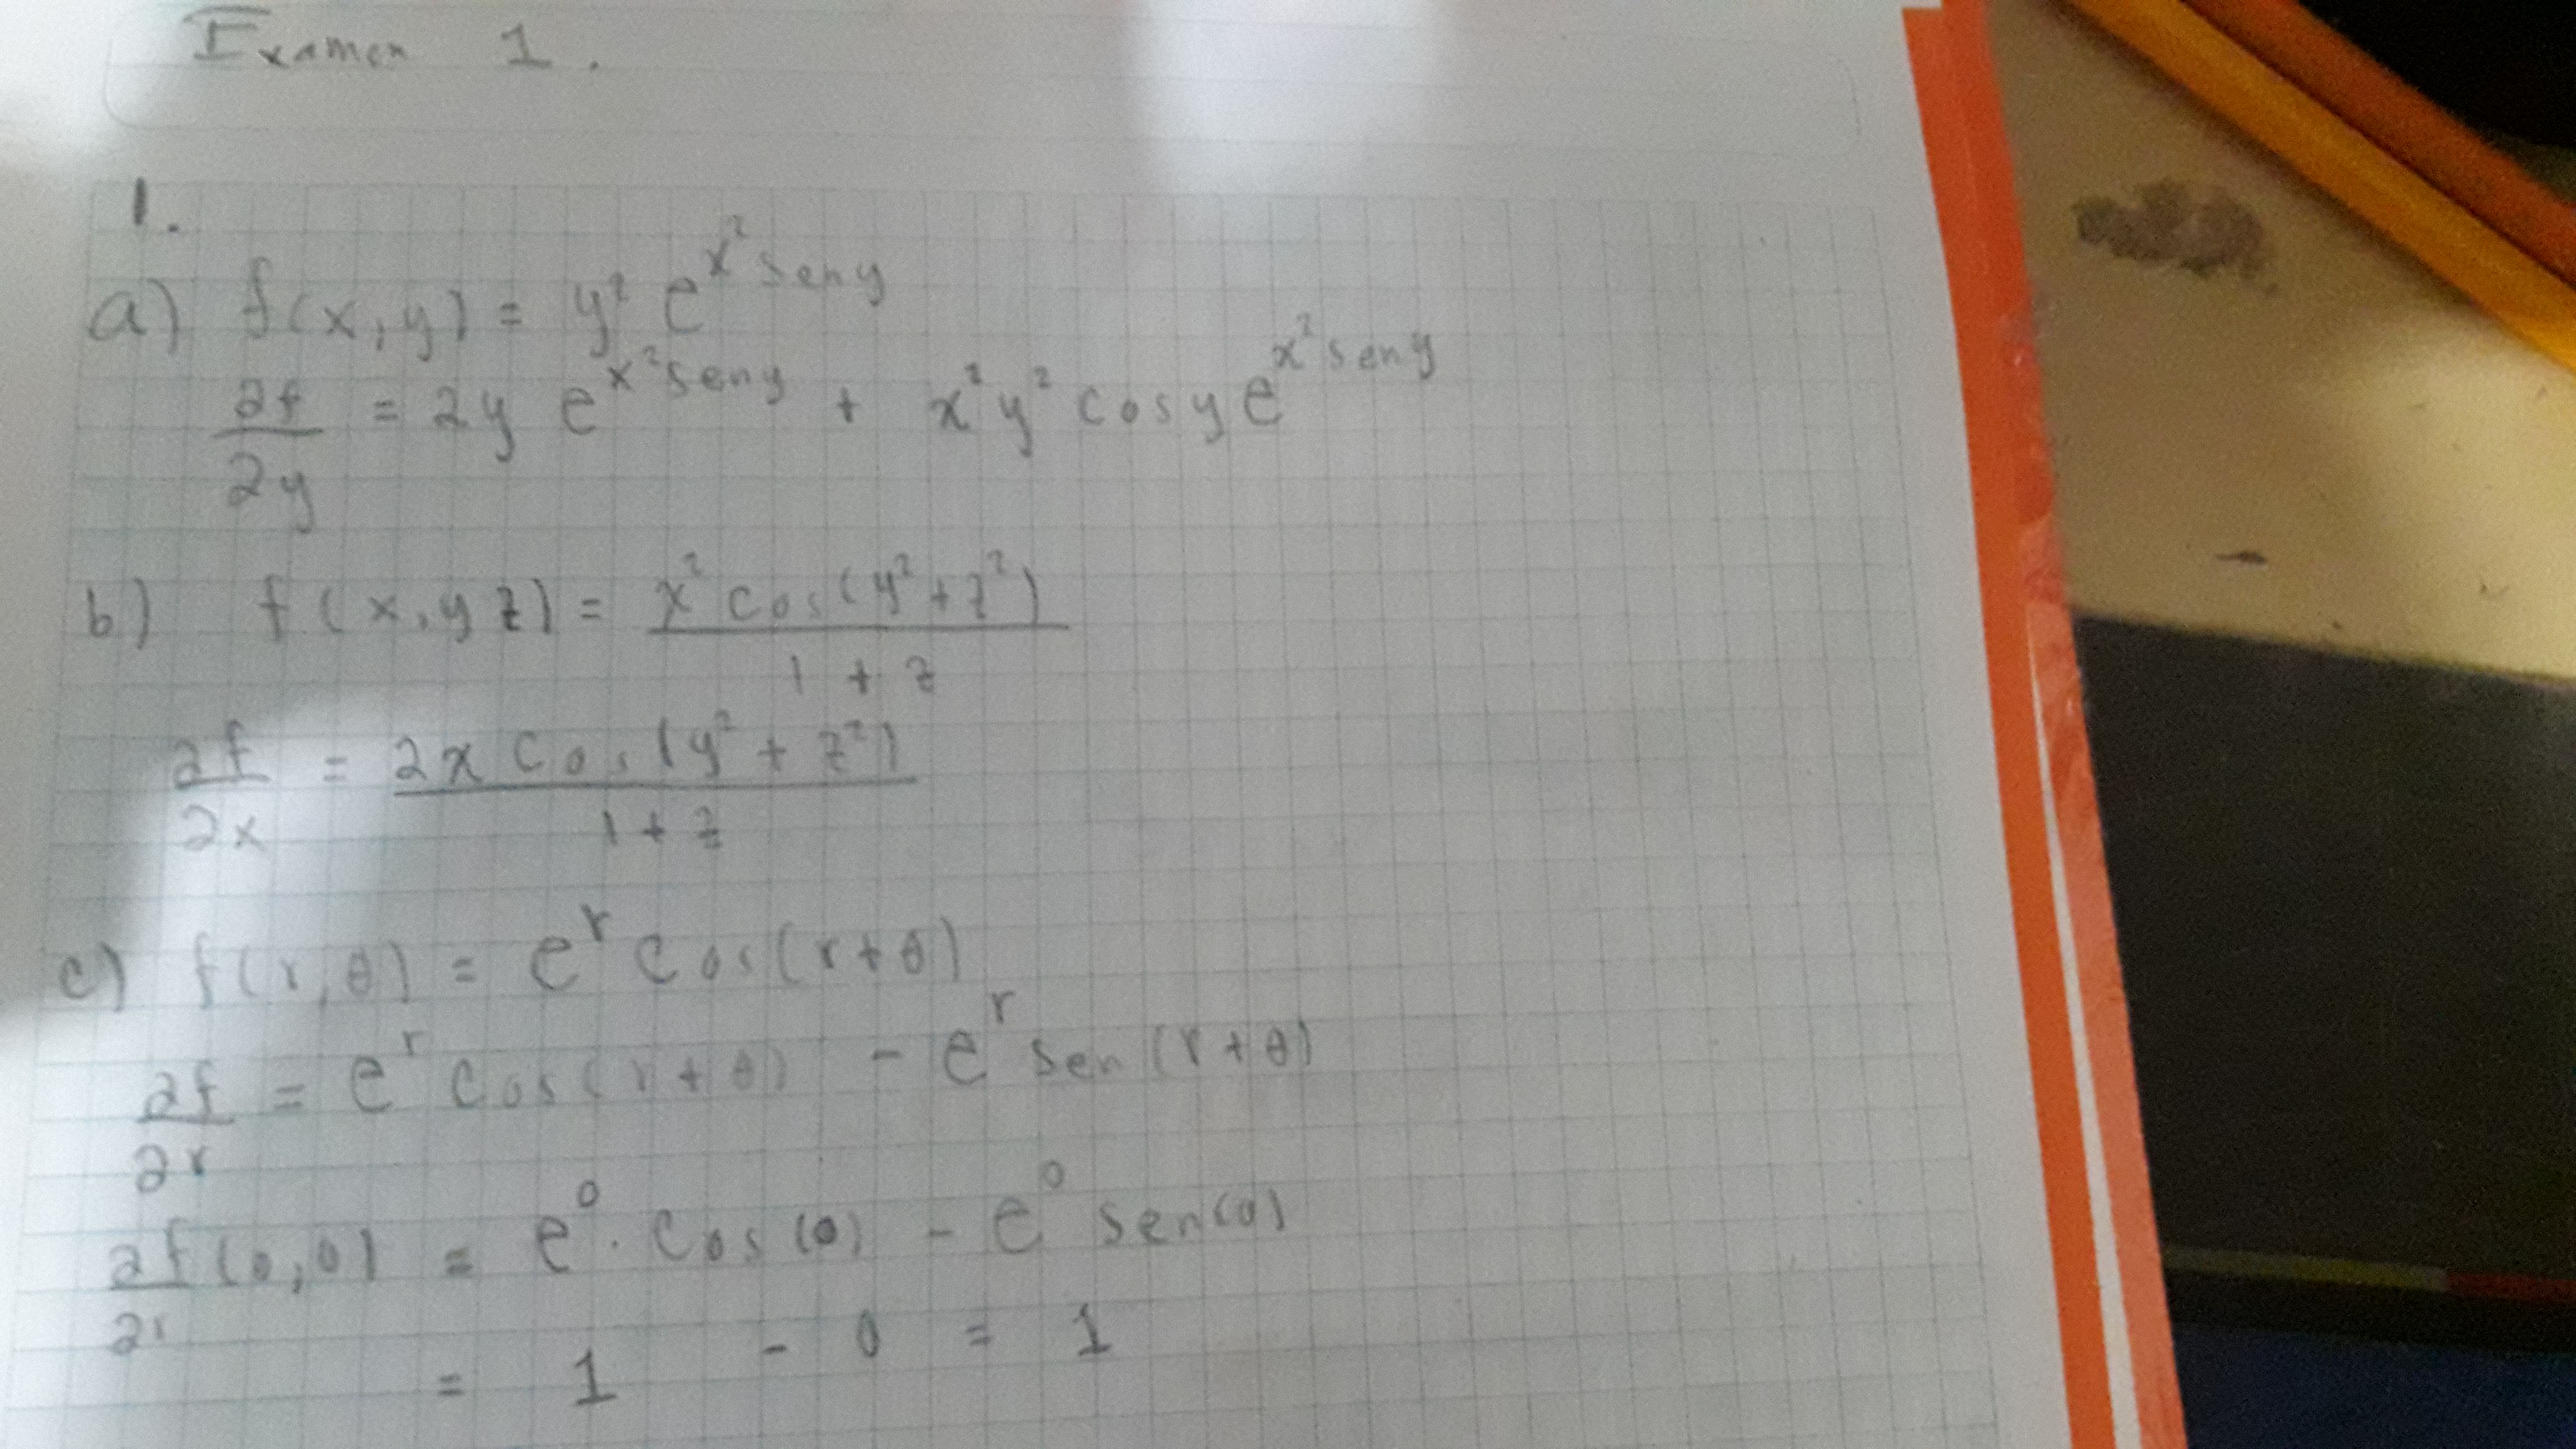 Examen 1.
1.
a) f(x,y) = y² e^{x² sen y}
∂f/∂y = 2y e^{x² sen y} + x² y² cos y e^{x² sen y}
b) f(x,y z) = x² cos(y² + z²) / 1 + z
∂f/∂x = 2x cos(y² + z²) / 1 + z
c) f(r,θ) = e^r cos(r + θ)
∂f/∂r = e^r cos(r + θ) - e^r sen(r + θ)
∂f/∂r (0,0) = e^0 . cos(0) - e^0 sen(0)
= 1 - 0 = 1